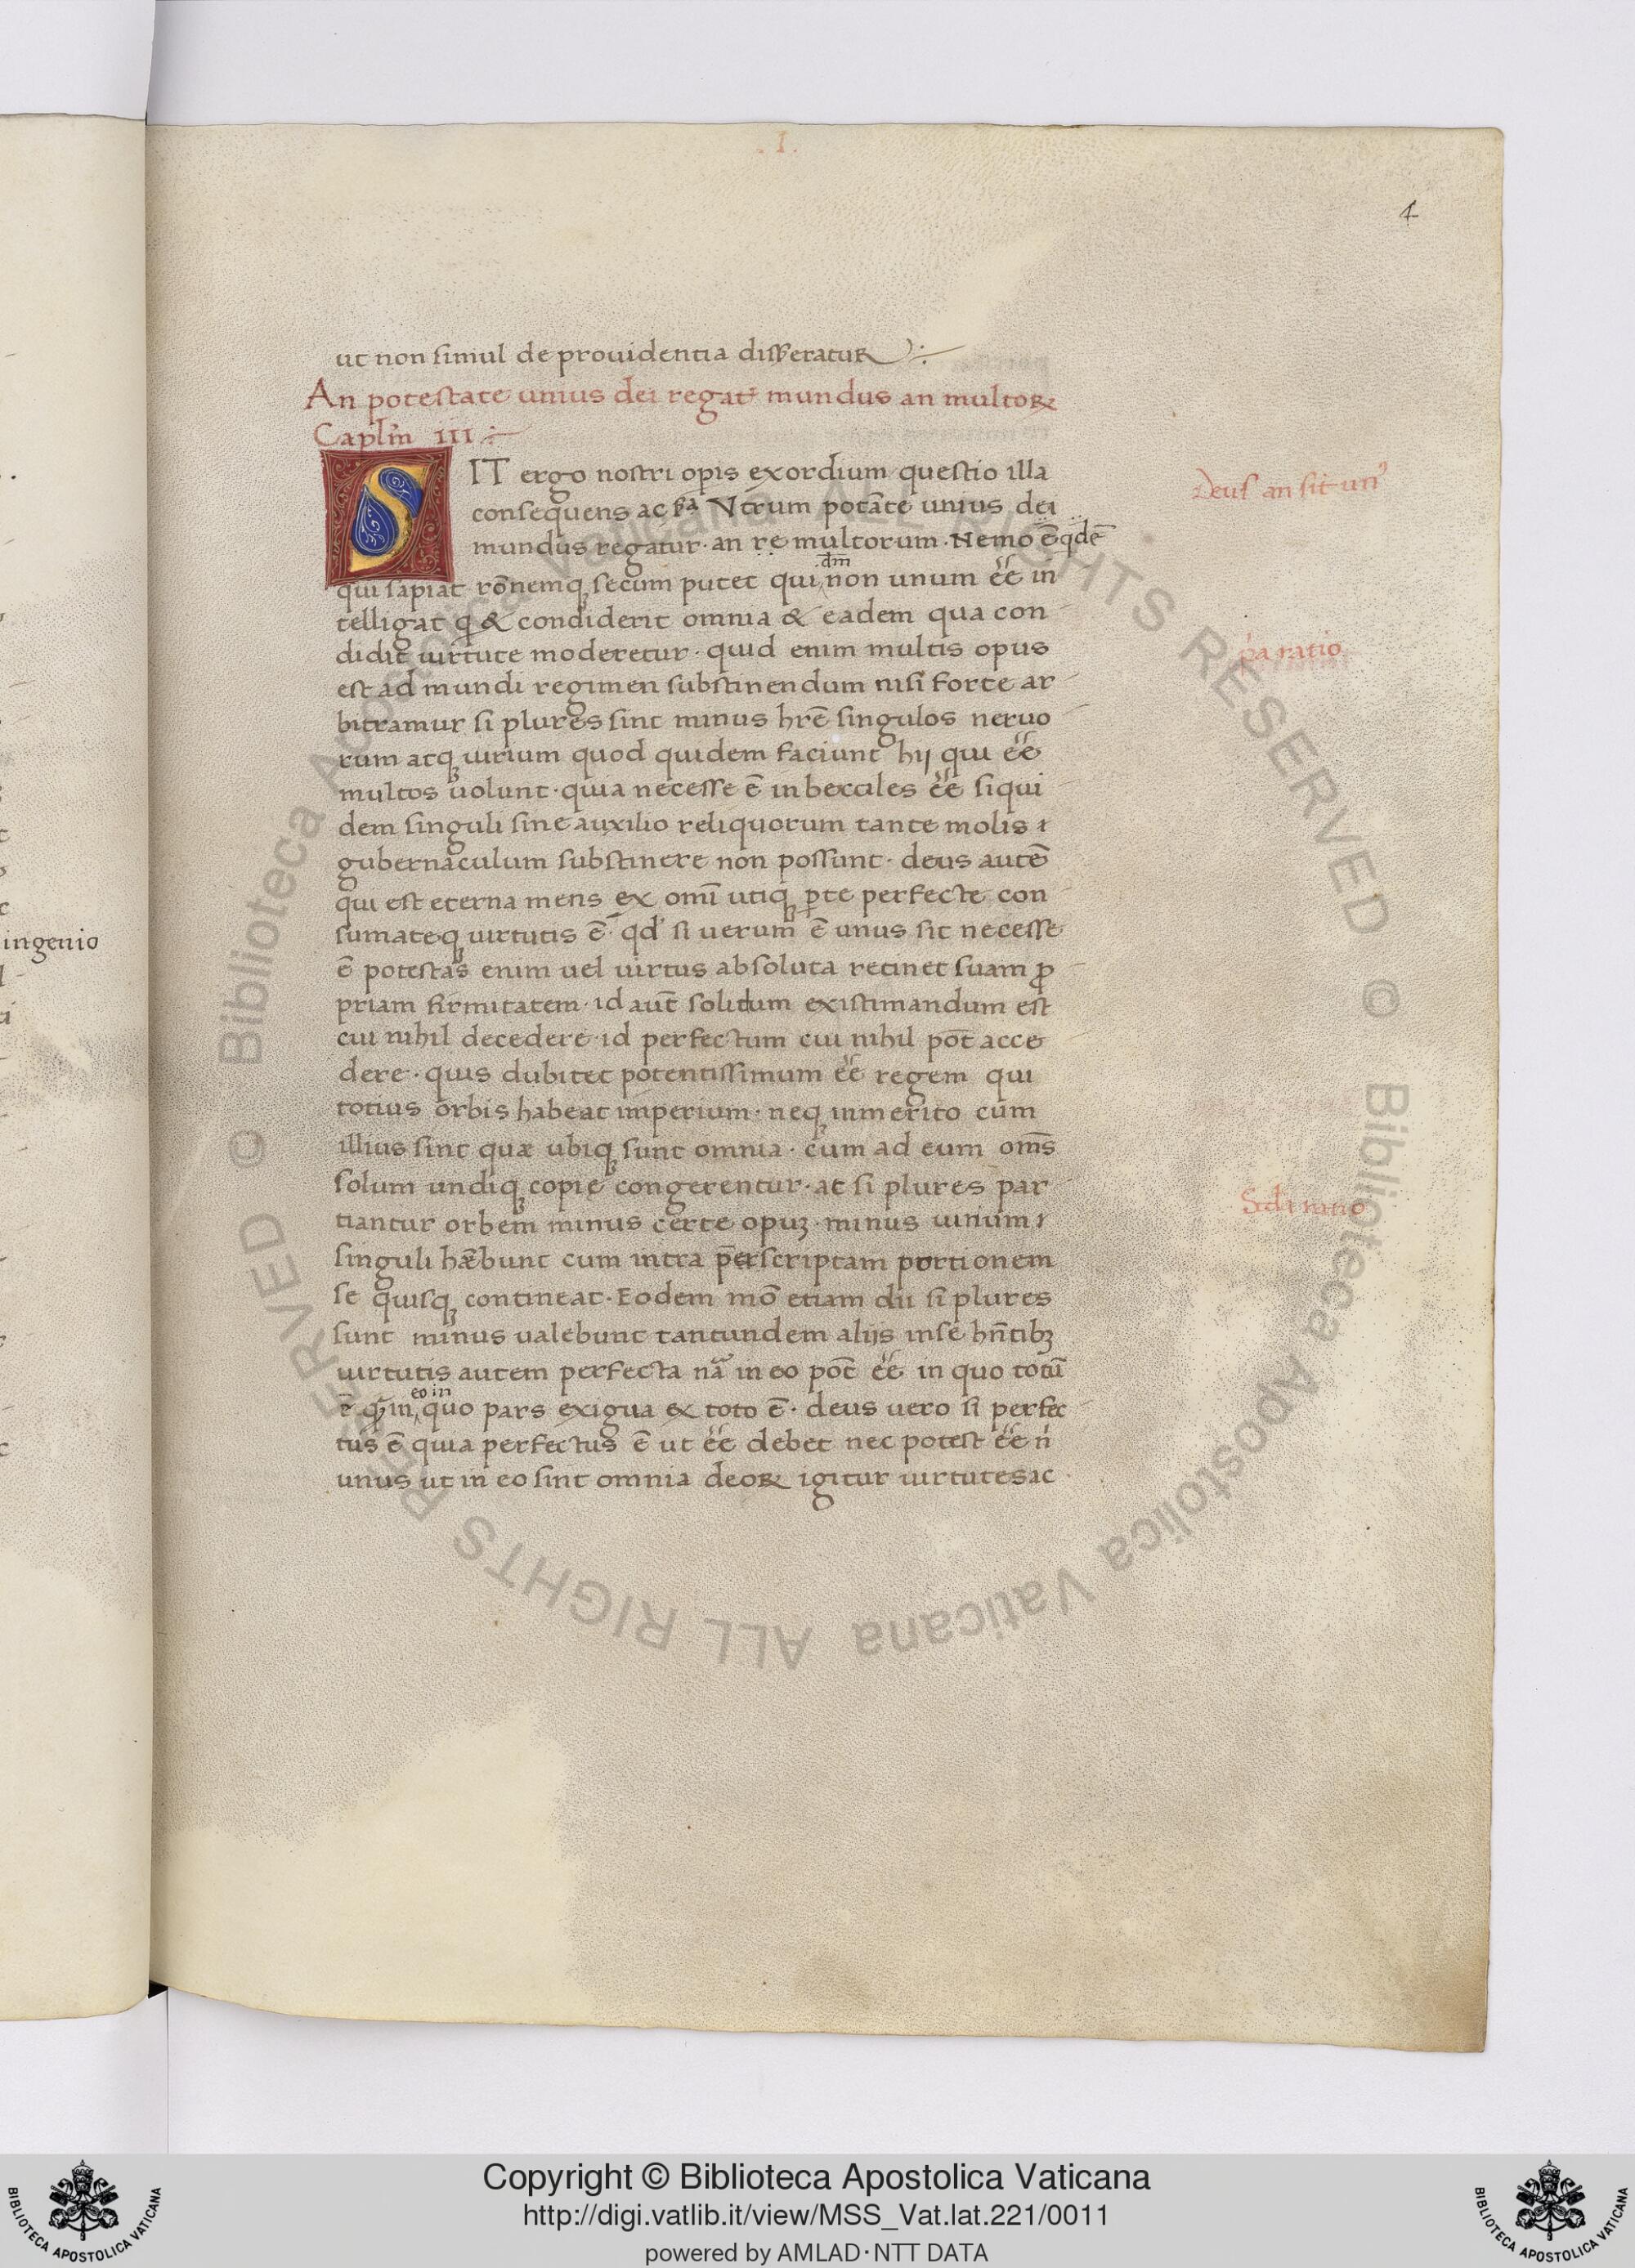 . I .
4
ut non simul de prouidentia disseratur
An potestate unius dei regat͛ mundus an multoꝝ
Capl̃m III
SIT ergo nostri opis exordium questio illa
consequens ac sꝺ̃a Vtrum potãte unius dei
mundus regatur · an re multorum · Nemo ẽ qdẽ
qui sapiat rõnemqꝫ secum putet qui non unum eẽ in
.dm̃
telligat q & condiderit omnia & eadem qua con
didit uirtute moderetur · quid enim multis opus
est ad mundi regimen substinendum nisi forte ar
bitramur si plures sint minus hr̃e singulos neruo
rum atqꝫ uirium quod quidem faciunt hij qui eẽ
multos uolunt · quia necesse ẽ inbecciles eẽ siqui
dem singuli sine auxilio reliquorum tante molis
gubernaculum substinere non possunt · deus autẽ
qui est eterna mens ex omĩ utiqꝫ ꝑte perfecte con
sumateqꝫ uirtutis ẽ · qd si uerum ẽ unus sit necesse
ẽ potestas enim uel uirtus absoluta retinet suam ꝓ
priam firmitatem · id aut̃ solidum existimandum est
cui nihil decedere · id perfectum cui nihil põt acce
dere · quis dubitet potentissimum eẽ regem qui
totius orbis habeat imperium · neqꝫ inmerito cum
illius sint quæ ubiqꝫ sunt omnia · cum ad eum om̃s
solum undiqꝫ copie congerentur · at si plures par
tiantur orbem minus certe opuꝫ · minus uirium
singuli hæ̃bunt cum intra perscriptam portionem
se quisqꝫ contineat · Eodem mõ etiam dii si plures
sunt minus ualebunt tantundem alijs inse hñtibꝫ
uirtutis autem perfecta nã in eo põt eẽ in quo totũ
eo in
ẽ qꝫ in quo pars exigua ex toto ẽ · deus uero si perfec
tus ẽ quia perfectus ẽ ut eẽ debet nec potest eẽ n̍
unus ut in eo sint omnia deoꝝ igitur uirtutes ac
Deus an sit un᾽
pa ratio
Scdi ratio
ingenio
Copyright © Biblioteca Apostolica Vaticana
http://digi.vatlib.it/view/MSS_Vat.lat.221/0011
powered by AMLAD·NTT DATA
BIBLIOTECA APOSTOLICA VATICANA
BIBLIOTECA APOSTOLICA VATICANA
© Biblioteca Apostolica Vaticana ALL RIGHTS RESERVED © Biblioteca Apostolica Vaticana ALL RIGHTS RESERVED